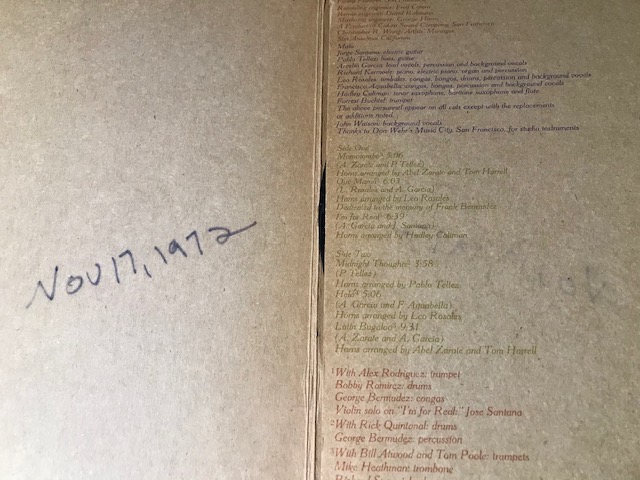 Nov 17, 1972
Recording engineer: Fred Catero
Malo
Jorge Santana: electric guitar
Pablo Tellez: bass, guitar
Arcelio Garcia: lead vocals, percussion and background vocals
Richard Kermode: piano, electric piano, organ and percussion
Leo Rosales: timbales, congas, bongos, drums, percussion and background vocals
Francisco Aquabella: congas, bongos, percussion and background vocals
Hadley Caliman: tenor saxophone, baritone saxophone and flute
Forrest Buchtel: trumpet
The above personnel appear on all cuts except with the replacements
or additions noted.
John Watson: background vocals
Thanks to Don Wehr's Music City, San Francisco, for studio instruments
Side One
Momotombo³ 5:06
(A. Zarate and P. Tellez)
Horns arranged by Abel Zarate and Tom Harrell
Oye Mamá² 6:03
(L. Rosales and A. Garcia)
Horns arranged by Leo Rosales
Dedicated to the memory of Frank Bermudez
I'm for Real¹ 6:39
(A. Garcia and J. Santana)
Horns arranged by Hadley Caliman
Side Two
Midnight Thoughts 3:58
(P. Tellez)
Horns arranged by Pablo Tellez
Helá 5:06
(A. Garcia and F. Aquabella)
Horns arranged by Leo Rosales
Latin Bugaloo³ 9:31
(A. Zarate and A. Garcia)
Horns arranged by Abel Zarate and Tom Harrell
¹With Alex Rodriguez: trumpet
Bobby Ramirez: drums
George Bermudez: congas
Violin solo on "I'm for Real:" Jose Santana
²With Rick Quintanal: drums
George Bermudez: percussion
³With Bill Atwood and Tom Poole: trumpets
Mike Heathman: trombone